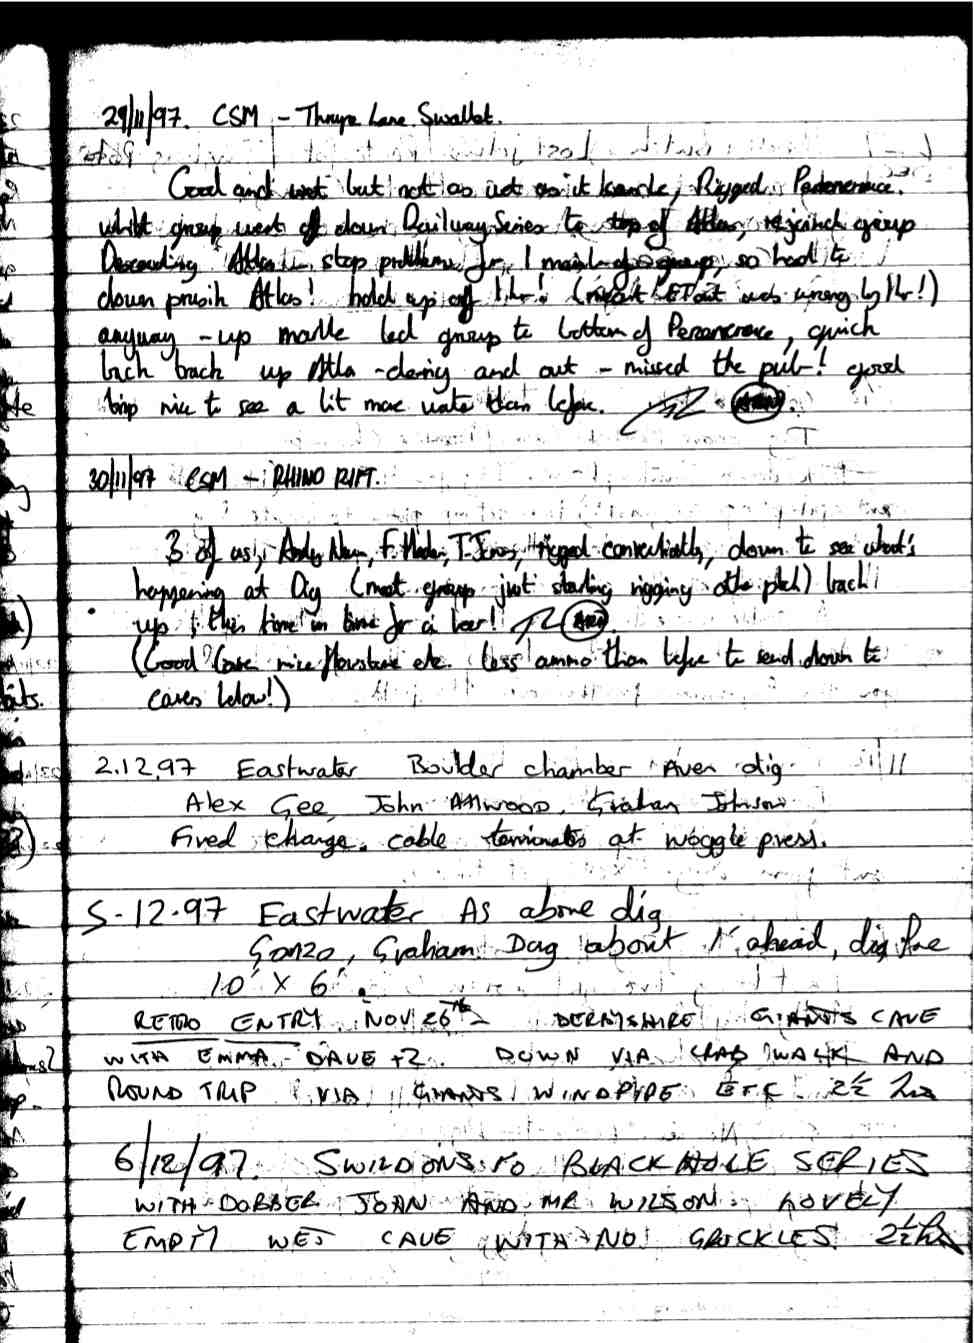 29/11/97. CSM - Thrupe Lane Swallet.
Good and wet but not as wet as it can be, Rigged Perseverance.
whilst group went off down Railway Series to top of Atlas, rejoined group
Descending Atlas - stop problems for 1 member of group, so had to
down prusik Atlas! held up of 1 hr! (meant ETout was wrong by 1hr!)
anyway - up marble led group to bottom of Perseverance, quick
back up Atlas - derig and out - missed the pub! good
trip nice to see a bit more water than before.
30/11/97 CSM - RHINO RIFT.
3 of us, Andy F. T. Jones, rigged conventionally, down to see what's
happening at Dig (met group just starting rigging other pitch) back
up this time in time for a beer!
(Good Cave nice flowstone etc. less ammo than before to send down to
cavers below!)
2.12.97 Eastwater Boulder chamber Aven dig.
Alex Gee, John Attwood, Graham Johnson
Fired charge. cable terminates at woggle press.
5-12-97 Eastwater As above dig
Gonzo, Graham Dug about 1' ahead, dig face
10' x 6'.
RETRO ENTRY NOV 26TH DERBYSHIRE GIANTS CAVE
WITH EMMA DAVE +2. DOWN VIA CRAB WALK AND
ROUND TRIP VIA GIANTS WINDPIPE ETC 2½ hrs
6/12/97. SWILDONS TO BLACK HOLE SERIES
WITH DOBBER JOHN AND MR WILSON. LOVELY
EMPTY WET CAVE WITH NO GROCKLES 2½ hrs